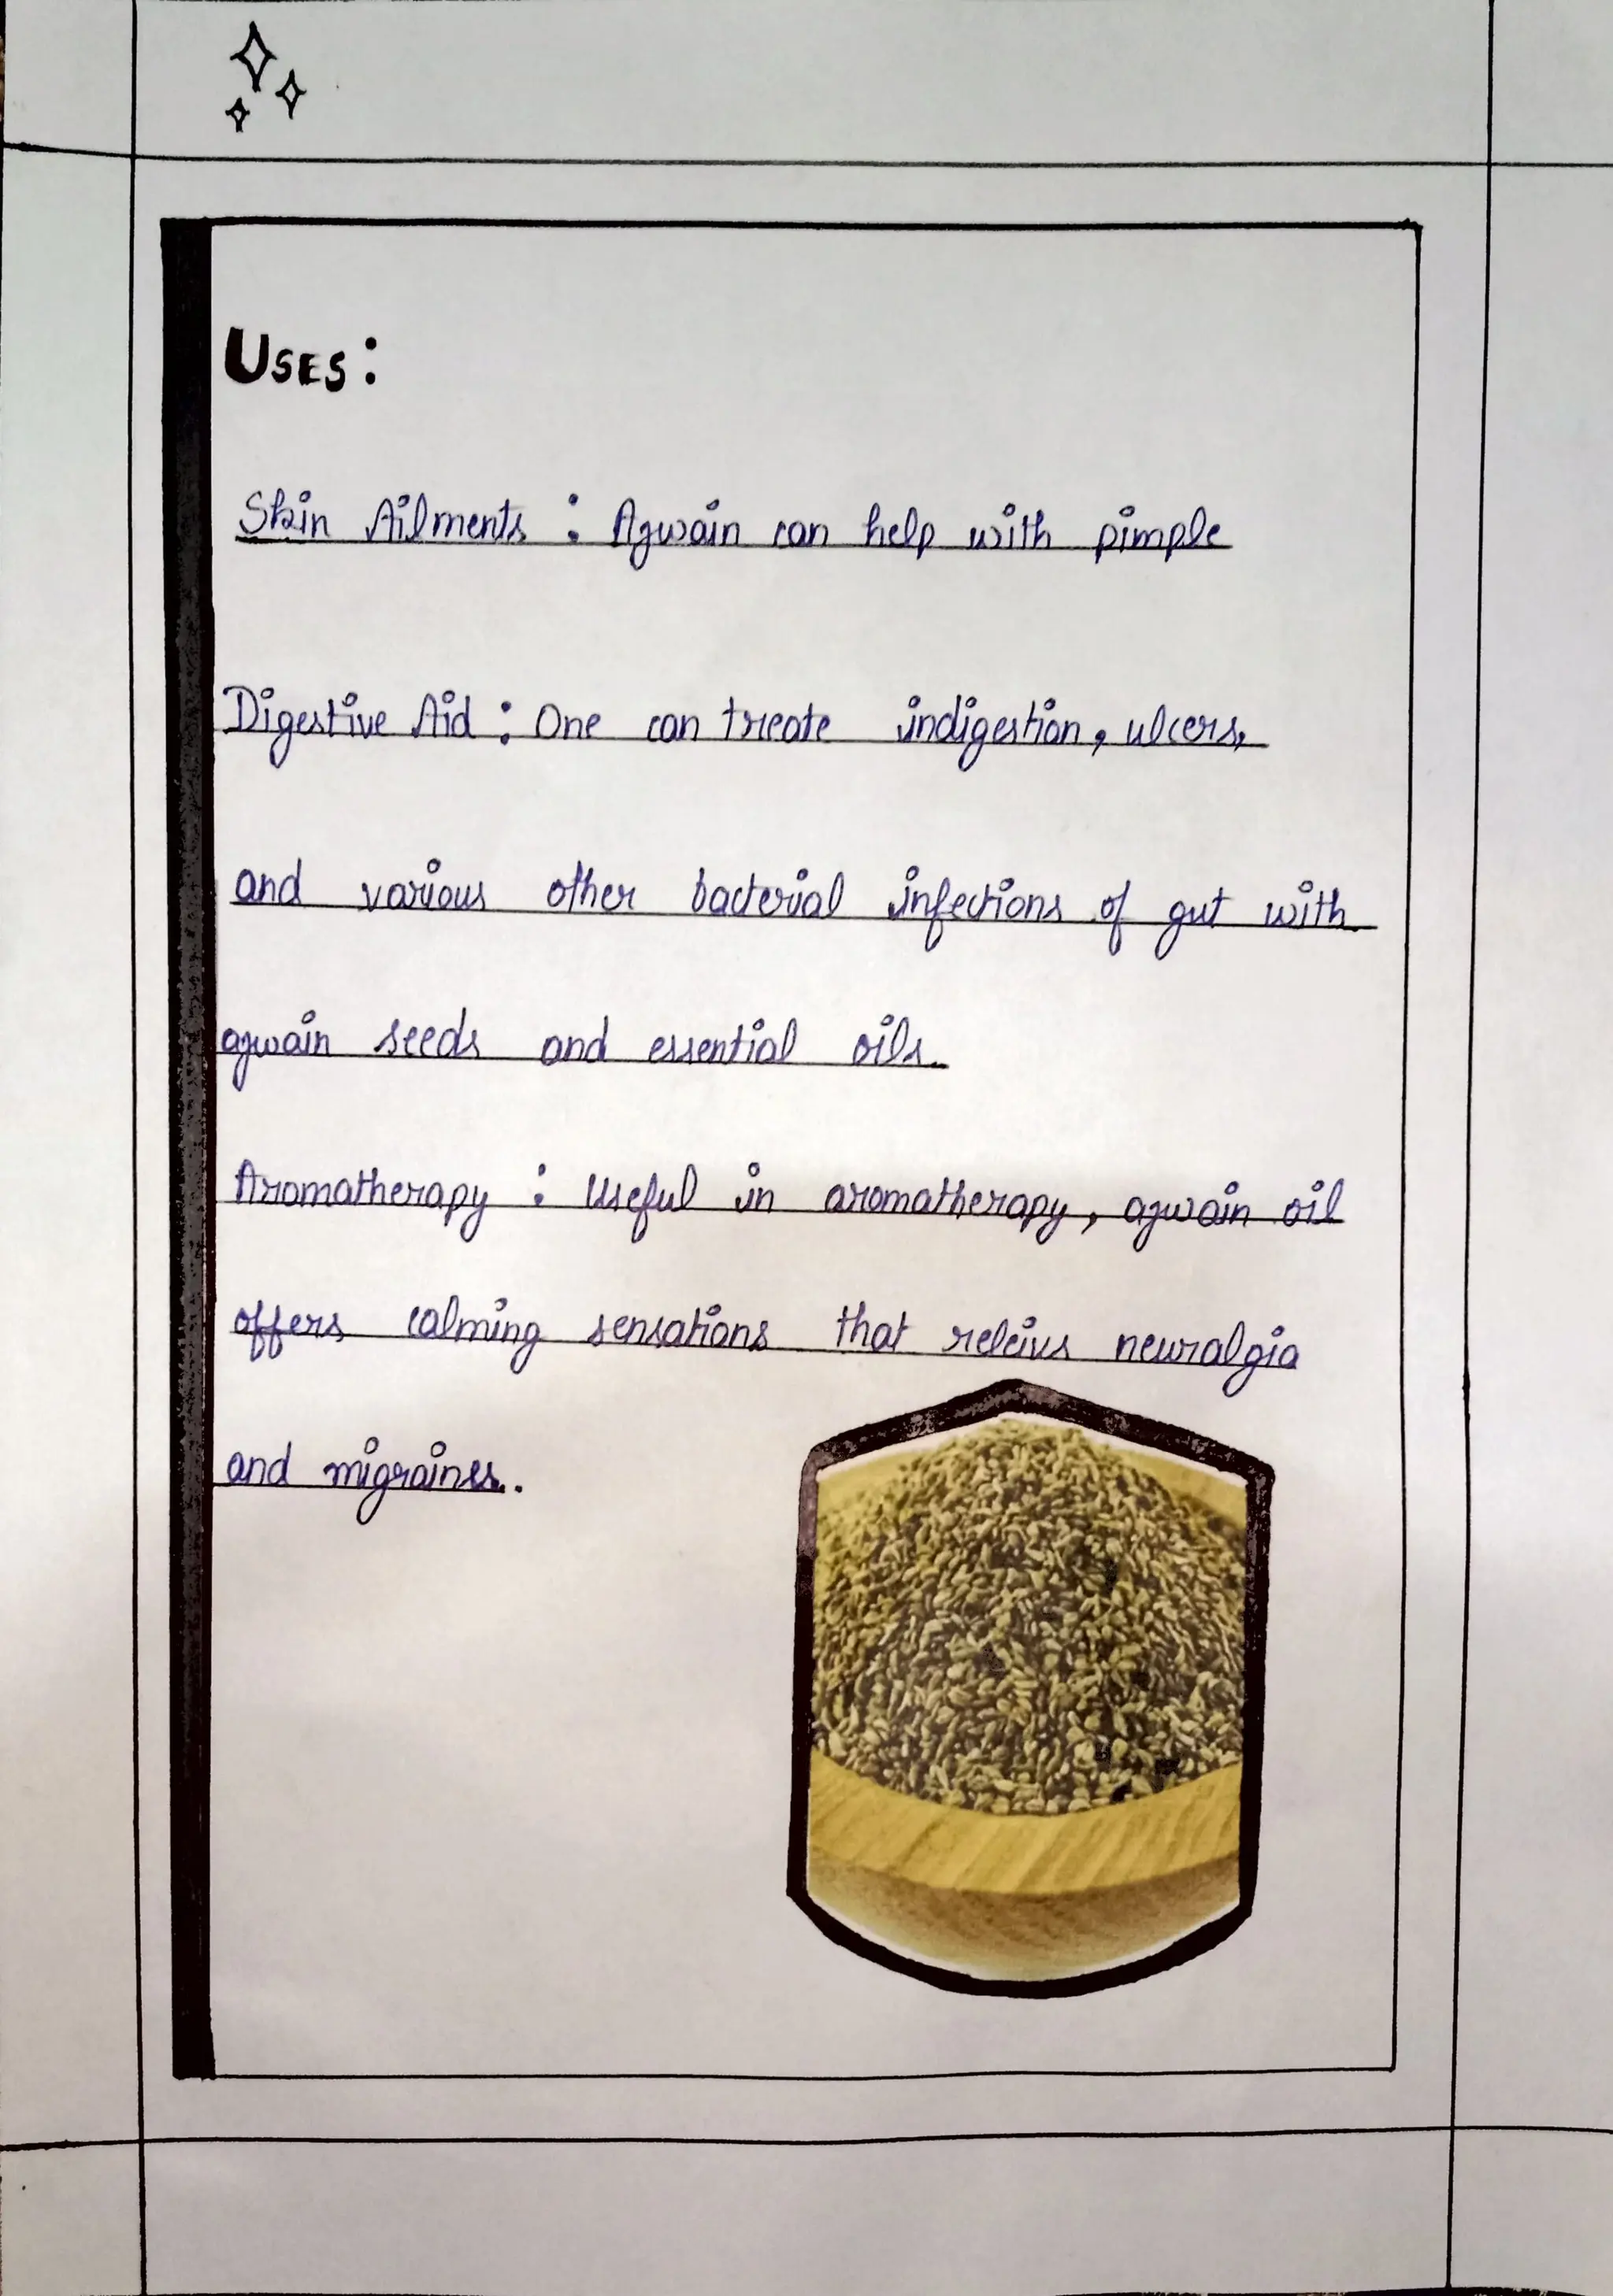 USES:
Skin Ailments : Ajwain can help with pimple
Digestive Aid : One can treate indigestion, ulcers,
and various other bacterial infections of gut with
ajwain seeds and essential oils.
Aromatherapy : Useful in aromatherapy, ajwain oil
offers calming sensations that releivs neuralgia
and migraines..